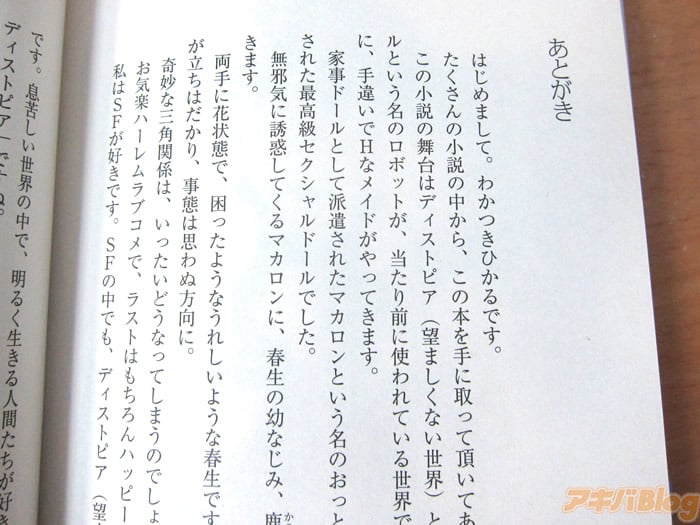 あとがき
はじめまして。わかつきひかるです。
たくさんの小説の中から、この本を手に取って頂いてあ
この小説の舞台はディストピア（望ましくない世界）と
ルという名のロボットが、当たり前に使われている世界で
に、手違いでHなメイドがやってきます。
家事ドールとして派遣されたマカロンという名のおっと
された最高級セクシャルドールでした。
無邪気に誘惑してくるマカロンに、春生の幼なじみ、鹿
か
きます。
両手に花状態で、困ったようなうれしいような春生です
が立ちはだかり、事態は思わぬ方向に。
奇妙な三角関係は、いったいどうなってしまうのでしょ
お気楽ハーレムラブコメで、ラストはもちろんハッピー
私はSFが好きです。SFの中でも、ディストピア（望
です。息苦しい世界の中で、明るく生きる人間たちが好き
ディストピア」ですね。
アキバBlog